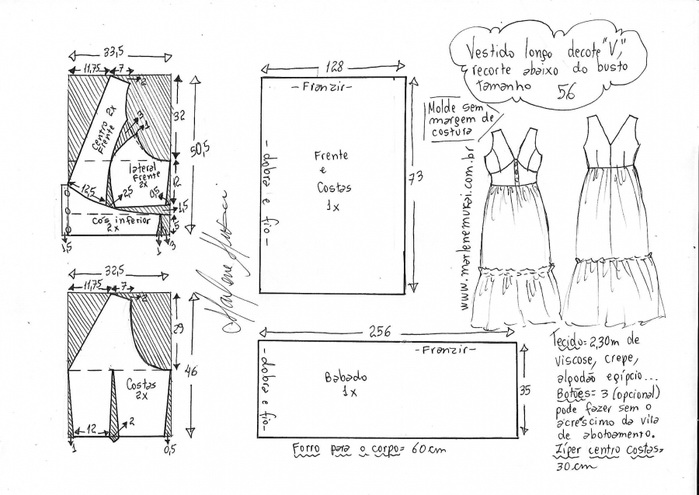 Vestido longo decote "V",
recorte abaixo do busto
Tamanho 56
Molde sem
margem de
costura
www.marlenemukai.com.br
33,5
11,75 7
2
32
50,5
3
1
centro
Frente
2x
lateral
frente
2x
12
12,5
2,5
0,5
1,5
5
cos inferior
2x
1,5
1
3
32,5
11,75 7
2
29
46
Costas
2x
12
2
1
0,5
128
-Franzir-
-dobra e fio-
Frente
e
Costas
1x
73
256
-Franzir-
-dobra e fio-
Babado
1x
35
Forro para o corpo= 60cm
Tecido= 2,30m de
viscose, crepe,
algodão egípcio...
Botões= 3 (opcional)
pode fazer sem o
acréscimo da vila
de abotoamento.
Zíper centro costas=
30cm